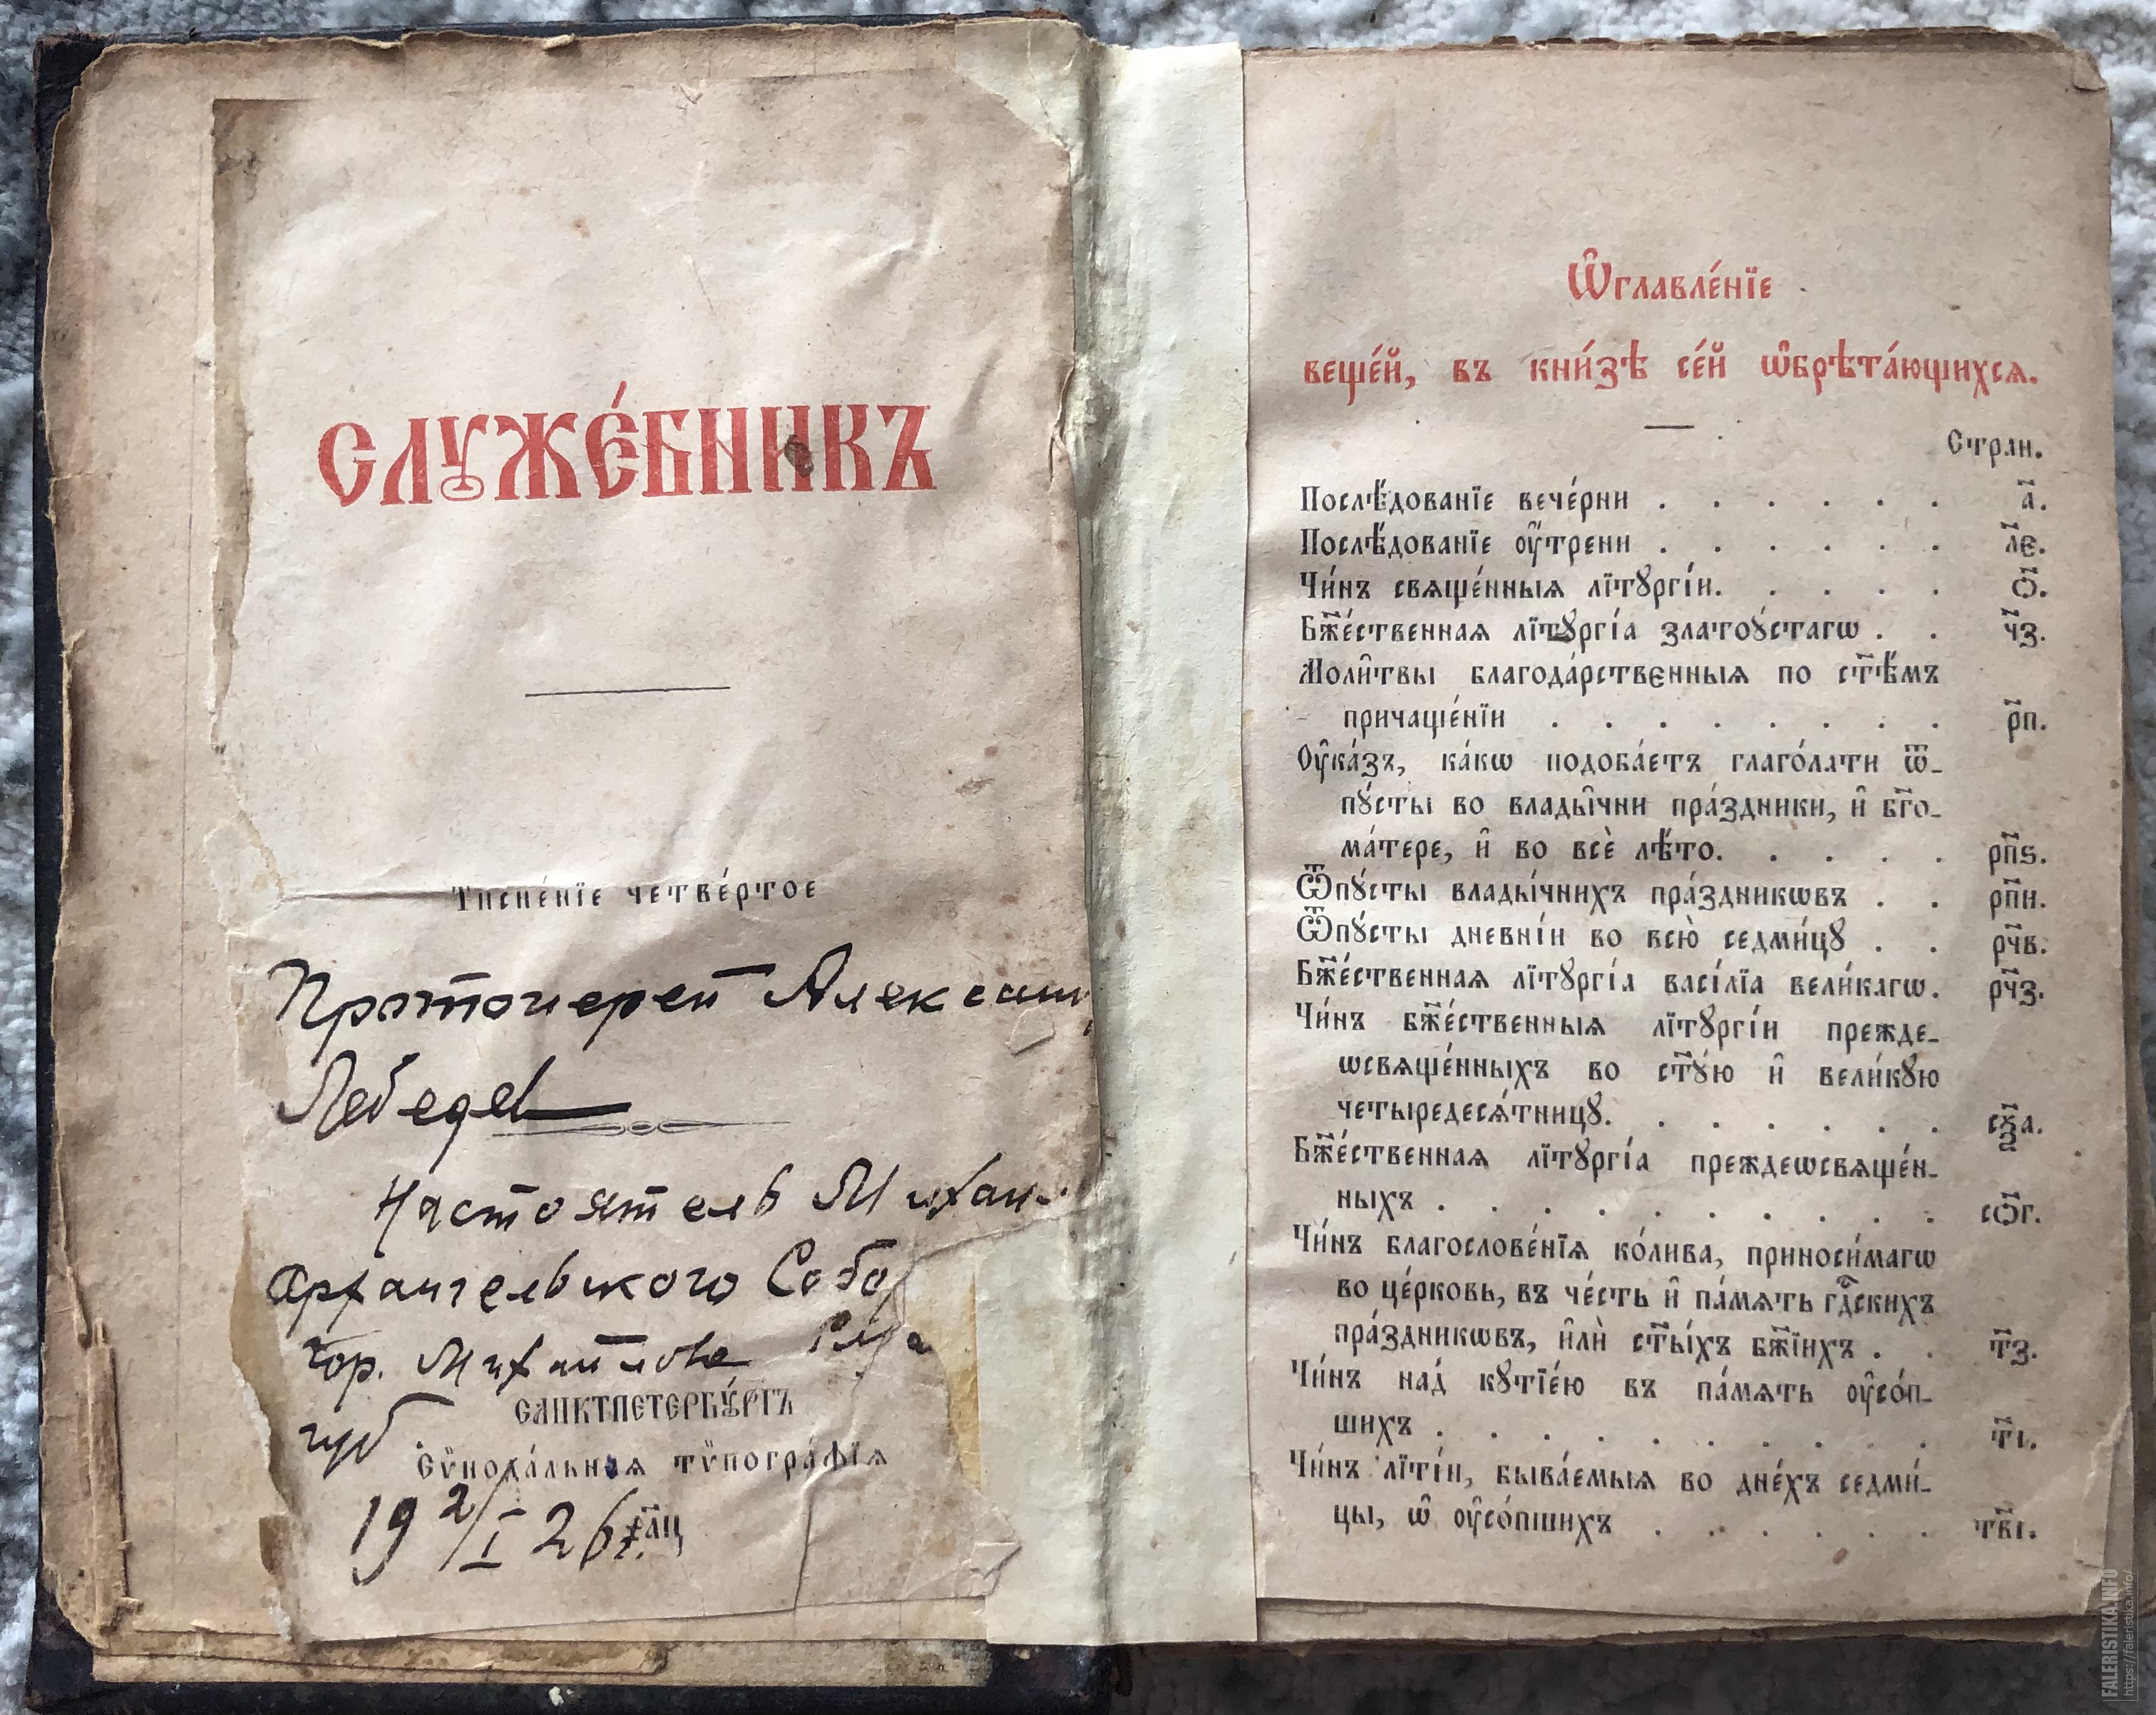 СЛꙊЖЕ́БНИКЪ
Тисне́нїе четве́ртое
Протоиерей
Лебедев
Настоятель
Архангельского
гор. Михайлова
губ
САНКТПЕТЕРБꙊ́РГЪ
Сѷнода́льная тѷпогра́фїя
19 2/I 26 г.
҂а҃ц
Ѡ҆главле́нїе
веще́й, въ кни́зѣ се́й ѡ҆брѣта́ющихся.
Стран.
Послѣ́дованїе вече́рни . . . . . . а҃.
Послѣ́дованїе оу҆́трени . . . . . . л҃є.
Чи́нъ свѧще́нныѧ лїтꙋргі́и. . . . . ѻ҃.
Бж҃е́ственнаѧ лїтꙋргі́а златоꙋ́стагѡ . . ч҃з.
Моли̑твы благода́рствєнныѧ по ст҃ѣ́мъ
причаще́нїи . . . . . . . . р҃п.
Оу҆ка́зъ, ка́кѡ подоба́етъ глаго́лати ѿ-
пꙋ́сты во влады̑чни пра́здники, и҆ бг҃о-
ма́тере, и҆ во всѐ лѣ́то. . . . . рп҃ѕ.
Ѿпꙋ́сты влады́чнихъ пра́здникѡвъ . . рп҃и.
Ѿпꙋ́сты дневні́и во всю̀ седми́цꙋ . . рч҃в.
Бж҃е́ственнаѧ лїтꙋргі́а васі́лїа вели́кагѡ. рч҃з.
Чи́нъ бж҃е́ственныѧ лїтꙋргі́и прежде-
ѡсвѧще́нныхъ во ст҃ꙋ́ю и҆ вели́кꙋю
четыредесѧ́тницꙋ. . . . . . . сѯ҃а.
Бж҃е́ственнаѧ лїтꙋргі́а преждеѡсвѧще́н-
ныхъ . . . . . . . . . . сѻ҃г.
Чи́нъ благослове́нїѧ ко́лива, приноси́магѡ
во це́рковь, въ че́сть и҆ па́мѧть гдⷭ҇кихъ
пра́здникѡвъ, и҆лѝ ст҃ы́хъ бж҃їихъ . . т҃з.
Чи́нъ над̾ кꙋтїе́ю въ па́мѧть оу҆со́п-
шихъ . . . . . . . . . . т҃і.
Чи́нъ лїті́и, быва́емыѧ во дне́хъ седми́-
цы, ѡ҆ оу҆со́пшихъ . . . . . . тв҃і.
FALERISTIKA.INFO
https://faleristika.info/